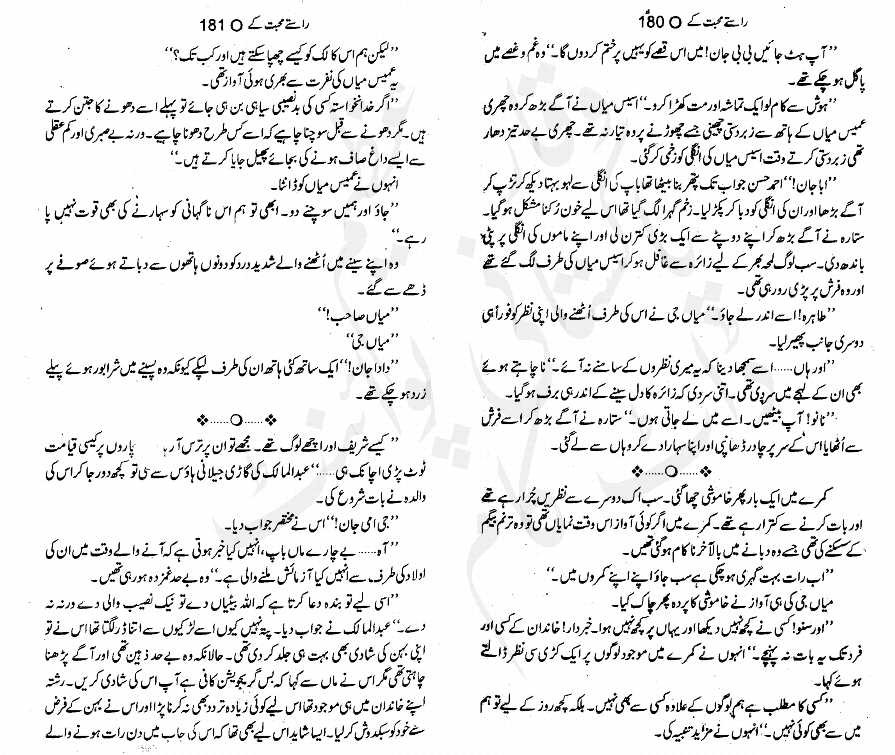 راستے محبت کے O 180
’’آپ ہٹ جائیں بی بی جان! میں اس قصے کو یہیں پر ختم کر دوں گا۔‘‘ وہ غم و غصے میں
پاگل ہو چکے تھے۔
’’ہوش سے کام لو ایک تماشہ اور مت کھڑا کرو۔‘‘ اسیس میاں نے آگے بڑھ کر وہ چھری
عمیس میاں کے ہاتھ سے زبردستی چھینی جسے چھوڑنے پر وہ تیار نہ تھے۔ چھری بے حد تیز دھار
تھی زبردستی کرتے وقت اسیس میاں کی انگلی کو زخمی کر گئی۔
’’ابا جان!‘‘ احمد حسن جواب تک پتھر بنا بیٹھا تھا باپ کی انگلی سے لہو بہتا دیکھ کر تڑپ کر
آگے بڑھا اور ان کی انگلی کو دبا کر پکڑ لیا۔ زخم گہرا لگ گیا تھا اس لیے خون رکنا مشکل ہو گیا۔
ستارہ نے آگے بڑھ کر اپنے دوپٹے سے ایک بڑی کترن لی اور اپنے ماموں کی انگلی پر پٹی
باندھ دی۔ سب لوگ لمحہ بھر کے لیے زائرہ سے غافل ہو کر اسیس میاں کی طرف لگ گئے تھے
اور وہ فرش پر پڑی رو رہی تھی۔
’’طاہرہ! اسے اندر لے جاؤ۔‘‘ میاں جی نے اس کی طرف اُٹھنے والی اپنی نظر کو فوراً ہی
دوسری جانب پھیر لیا۔
’’اور ہاں...... اسے سمجھا دینا کہ یہ میری نظروں کے سامنے نہ آئے۔‘‘ نا چاہتے ہوئے
بھی ان کے لہجے میں سردی تھی۔ اتنی سردی کہ زائرہ کا دل سینے کے اندر ہی برف ہو گیا۔
’’نانو! آپ بیٹھیں۔ اسے میں لے جاتی ہوں۔‘‘ ستارہ نے آگے بڑھ کر اسے فرش
سے اُٹھایا اس کے سر پر چادر ڈھانپی اور اپنا سہارا دے کر وہاں سے لے گئی۔
❖......O......❖
کمرے میں ایک بار پھر خاموشی چھا گئی۔ سب اک دوسرے سے نظریں چُرا رہے تھے
اور بات کرنے سے کترا رہے تھے۔ کمرے میں اگر کوئی آواز اس وقت نمایاں تھی تو وہ ترنم بیگم
کے سسکنے کی تھی جسے وہ دبانے میں بالآخر ناکام ہو گئیں تھیں۔
’’اب رات بہت گہری ہو چکی ہے سب جاؤ اپنے اپنے کمروں میں۔‘‘
میاں جی کی ہی آواز نے خاموشی کا پردہ پھر چاک کیا۔
’’اور سنو! کسی نے کچھ نہیں دیکھا اور یہاں پر کچھ نہیں ہوا۔ خبردار! خاندان کے کسی اور
فرد تک یہ بات نہ پہنچے۔‘‘ انہوں نے کمرے میں موجود لوگوں پر ایک کڑی سی نظر ڈالتے
ہوئے کہا۔
’’کسی کا مطلب ہے ہم لوگوں کے علاوہ کسی سے بھی نہیں۔ بلکہ کچھ روز کے لیے تو ہم
میں سے بھی کوئی نہیں۔‘‘ انہوں نے مزید تنبیہ کی۔
راستے محبت کے O 181
’’لیکن ہم اس کالک کو کیسے چھپا سکتے ہیں اور کب تک؟‘‘
یہ عمیس میاں کی نفرت سے بھری ہوئی آواز تھی۔
’’اگر خدانخواستہ کسی کی بدنصیبی سیاہی بن ہی جائے تو پہلے اسے دھونے کا جتن کرتے
ہیں۔ مگر دھونے سے قبل سوچنا چاہیے کہ اسے کس طرح دھونا چاہیے۔ ورنہ بے صبری اور کم عقلی
سے ایسے داغ صاف ہونے کی بجائے پھیل جایا کرتے ہیں۔‘‘
انہوں نے عمیس میاں کو ڈانٹا۔
’’جاؤ اور ہمیں سوچنے دو۔ ابھی تو ہم اس ناگہانی کو سہارنے کی بھی قوت نہیں پا
رہے۔‘‘
وہ اپنے سینے میں اُٹھنے والے شدید درد کو دونوں ہاتھوں سے دباتے ہوئے صوفے پر
ڈھے سے گئے۔
’’میاں صاحب!‘‘
’’میاں جی!‘‘
’’دادا جان!‘‘ ایک ساتھ کئی ہاتھ ان کی طرف لپکے کیونکہ وہ پسینے میں شرابور ہوئے پیلے
زرد ہو چکے تھے۔
❖......O......❖
’’کیسے شریف اور اچھے لوگ تھے۔ مجھے تو ان پر ترس آ رہا پاروں پر کیسی قیامت
ٹوٹ پڑی اچانک ہی......‘‘ عبدالمالک کی گاڑی جیلانی ہاؤس سے تو کچھ دور جا کر اس کی
والدہ نے بات شروع کی۔
’’جی امی جان!‘‘ اس نے مختصر جواب دیا۔
’’آہ...... بے چارے ماں باپ، انہیں کیا خبر ہوتی ہے کہ آنے والے وقت میں ان کی
اولاد کی طرف سے انہیں کیا آزمائش ملنے والی ہے۔‘‘ وہ بے حد غمزدہ ہو رہی تھیں۔
’’اسی لیے تو بندہ دعا کرتا ہے کہ اللہ بیٹیاں دے تو نیک نصیب والی دے ورنہ نہ
دے۔‘‘ عبدالمالک نے جواب دیا۔ پتہ نہیں کیوں اسے لڑکیوں سے اتنا ڈر لگتا تھا اس نے تو
اپنی بہن کی شادی بھی بہت ہی جلد کر دی تھی۔ حالانکہ وہ بے حد ذہین تھی اور آگے پڑھنا
چاہتی تھی مگر اس نے ماں سے کہا کہ بس گریجویشن کافی ہے آپ اس کی شادی کریں۔ رشتہ
اپنے خاندان میں ہی موجود تھا اس لیے کوئی زیادہ تردد بھی نہ کرنا پڑا اور اس نے بہن کے فرض
سے خود کو سبکدوش کر لیا۔ ایسا شاید اس لیے بھی تھا کہ اس کی جاب میں دن رات ہونے والے